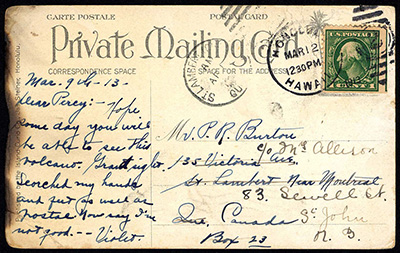 CARTE POSTALE
POSTAL CARD
Private Mailing Card
CORRESPONDENCE SPACE
SPACE FOR THE ADDRESS
HONOLULU
MAR 12
1230 PM
HAWAII
ST. LAMBERT
QUE
1 CENT 1
Mar. 9th - 13 -
Dear Percy:- Hope
some day you will
be able to see this
volcano. Great sight.
Scorched my hands
and put as well as
postal. Now say I'm
not good -- Violet.
Mr. P. R. Burton
c/o Mrs Allison
135 Victoria Ave.
St. Lambert Near Montreal
83. Sewell St.
Que. Canada St John
Box 23 N. B.